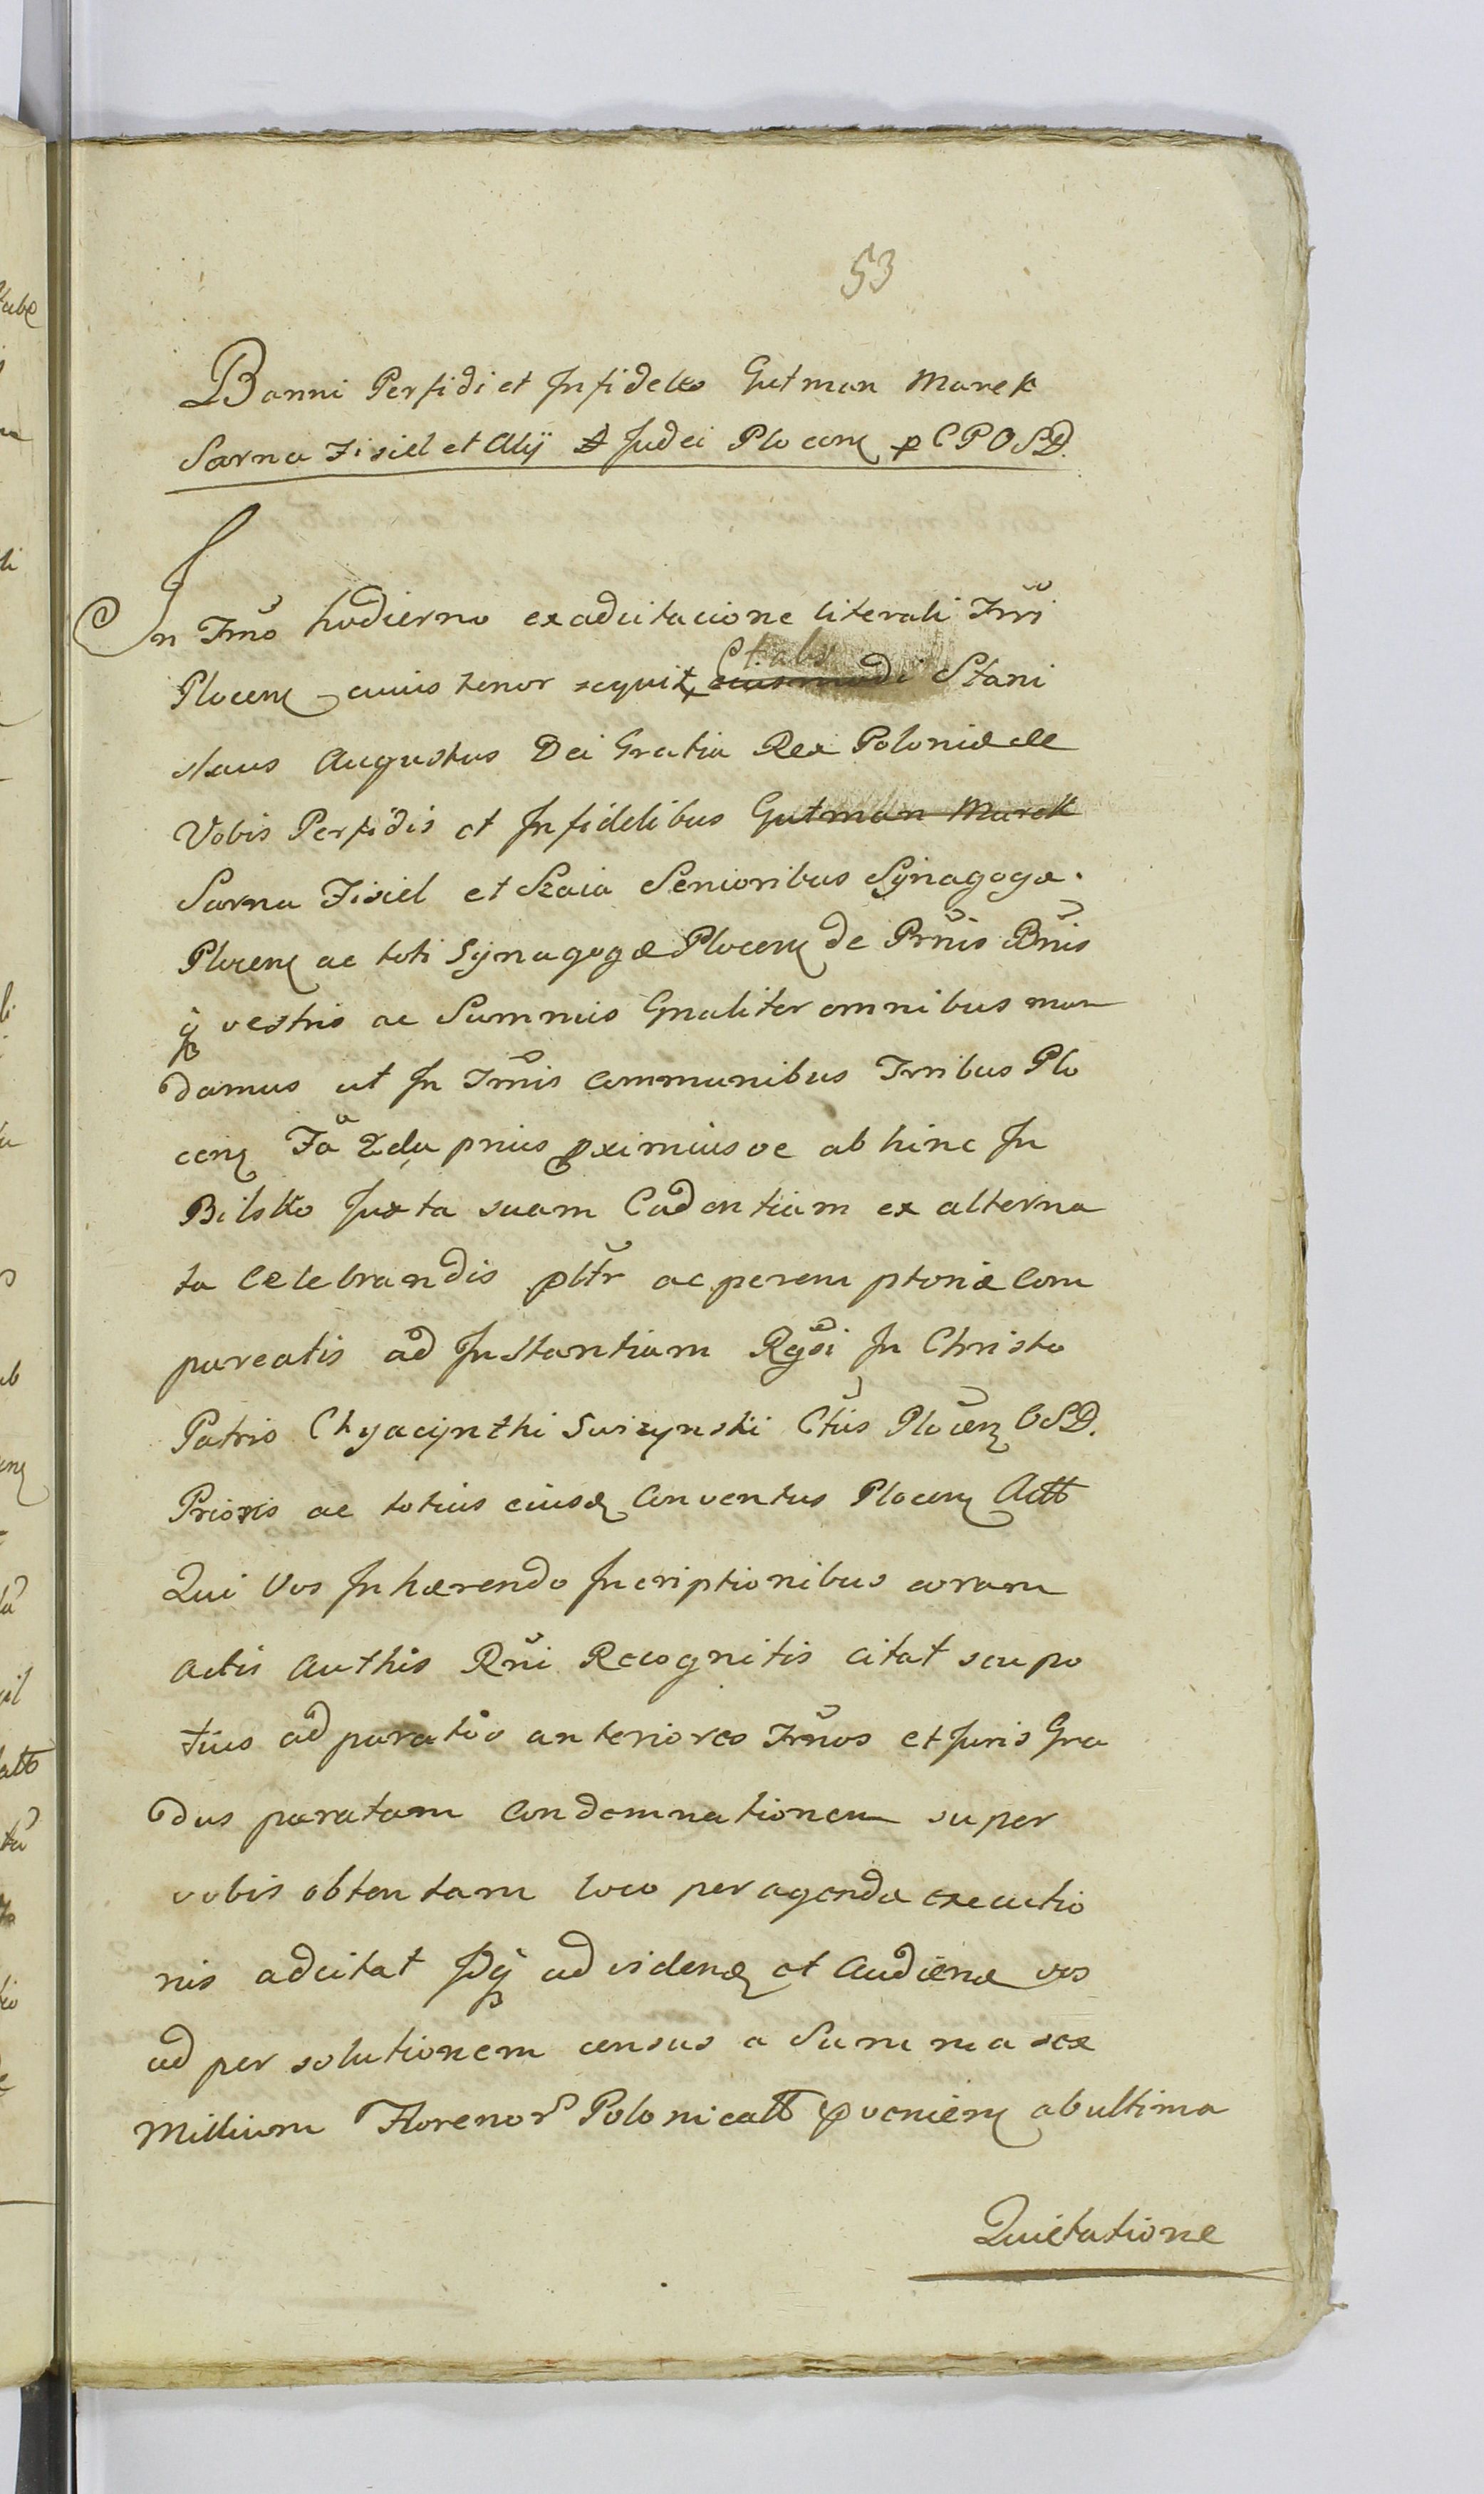 53
Banni Perfidi et Infideles Gutman Marek
Sarna Fisiel et Alij Judei Plocen p CPOSD.
In Trnõ hodierno ex adcitacione literali Trri
Plocen cuius tenor sequit, eiusmodi Stani
slaus Augustus Dei Gratia Rex Poloniæ
Vobis Perfidis et Infidelibus Gutman Marek
Sarna Fisiel et Szaia Senioribus Synagogæ
Plocen ac toti Synagogæ Plocen de Prnis Bnis
q vestris ac Summis Gnaliter omnibus man
damus ut In Trnis communibus Trribus Plo
cen Fa 2da prius pximius ve ab hinc In
Bilsko Juxta suam Cadentiam ex alterna
ta Celebrandis pltr ac peremptorie Com
pareatis ad Instantiam Rgsi In Christo
Patris Chyacynthi Suszynski Ctus Plocen OSD.
Prioris ac totius eiusd Conventus Plocen Actt
Qui Vos Inhærendo Incriptionibus coram
actis Authis Rni Recognitis citat seu po
tius ad parato anteriores Trnos et Juris Gra
dus paratam Condemnationem super
vobis obtentam loco peragenda executio
nis adcitat Pq ad viden et Audiend vos
ad persolutionem census a Summa sex
Millium Florenor Polonicall pvenien ab ultima
Quietatione